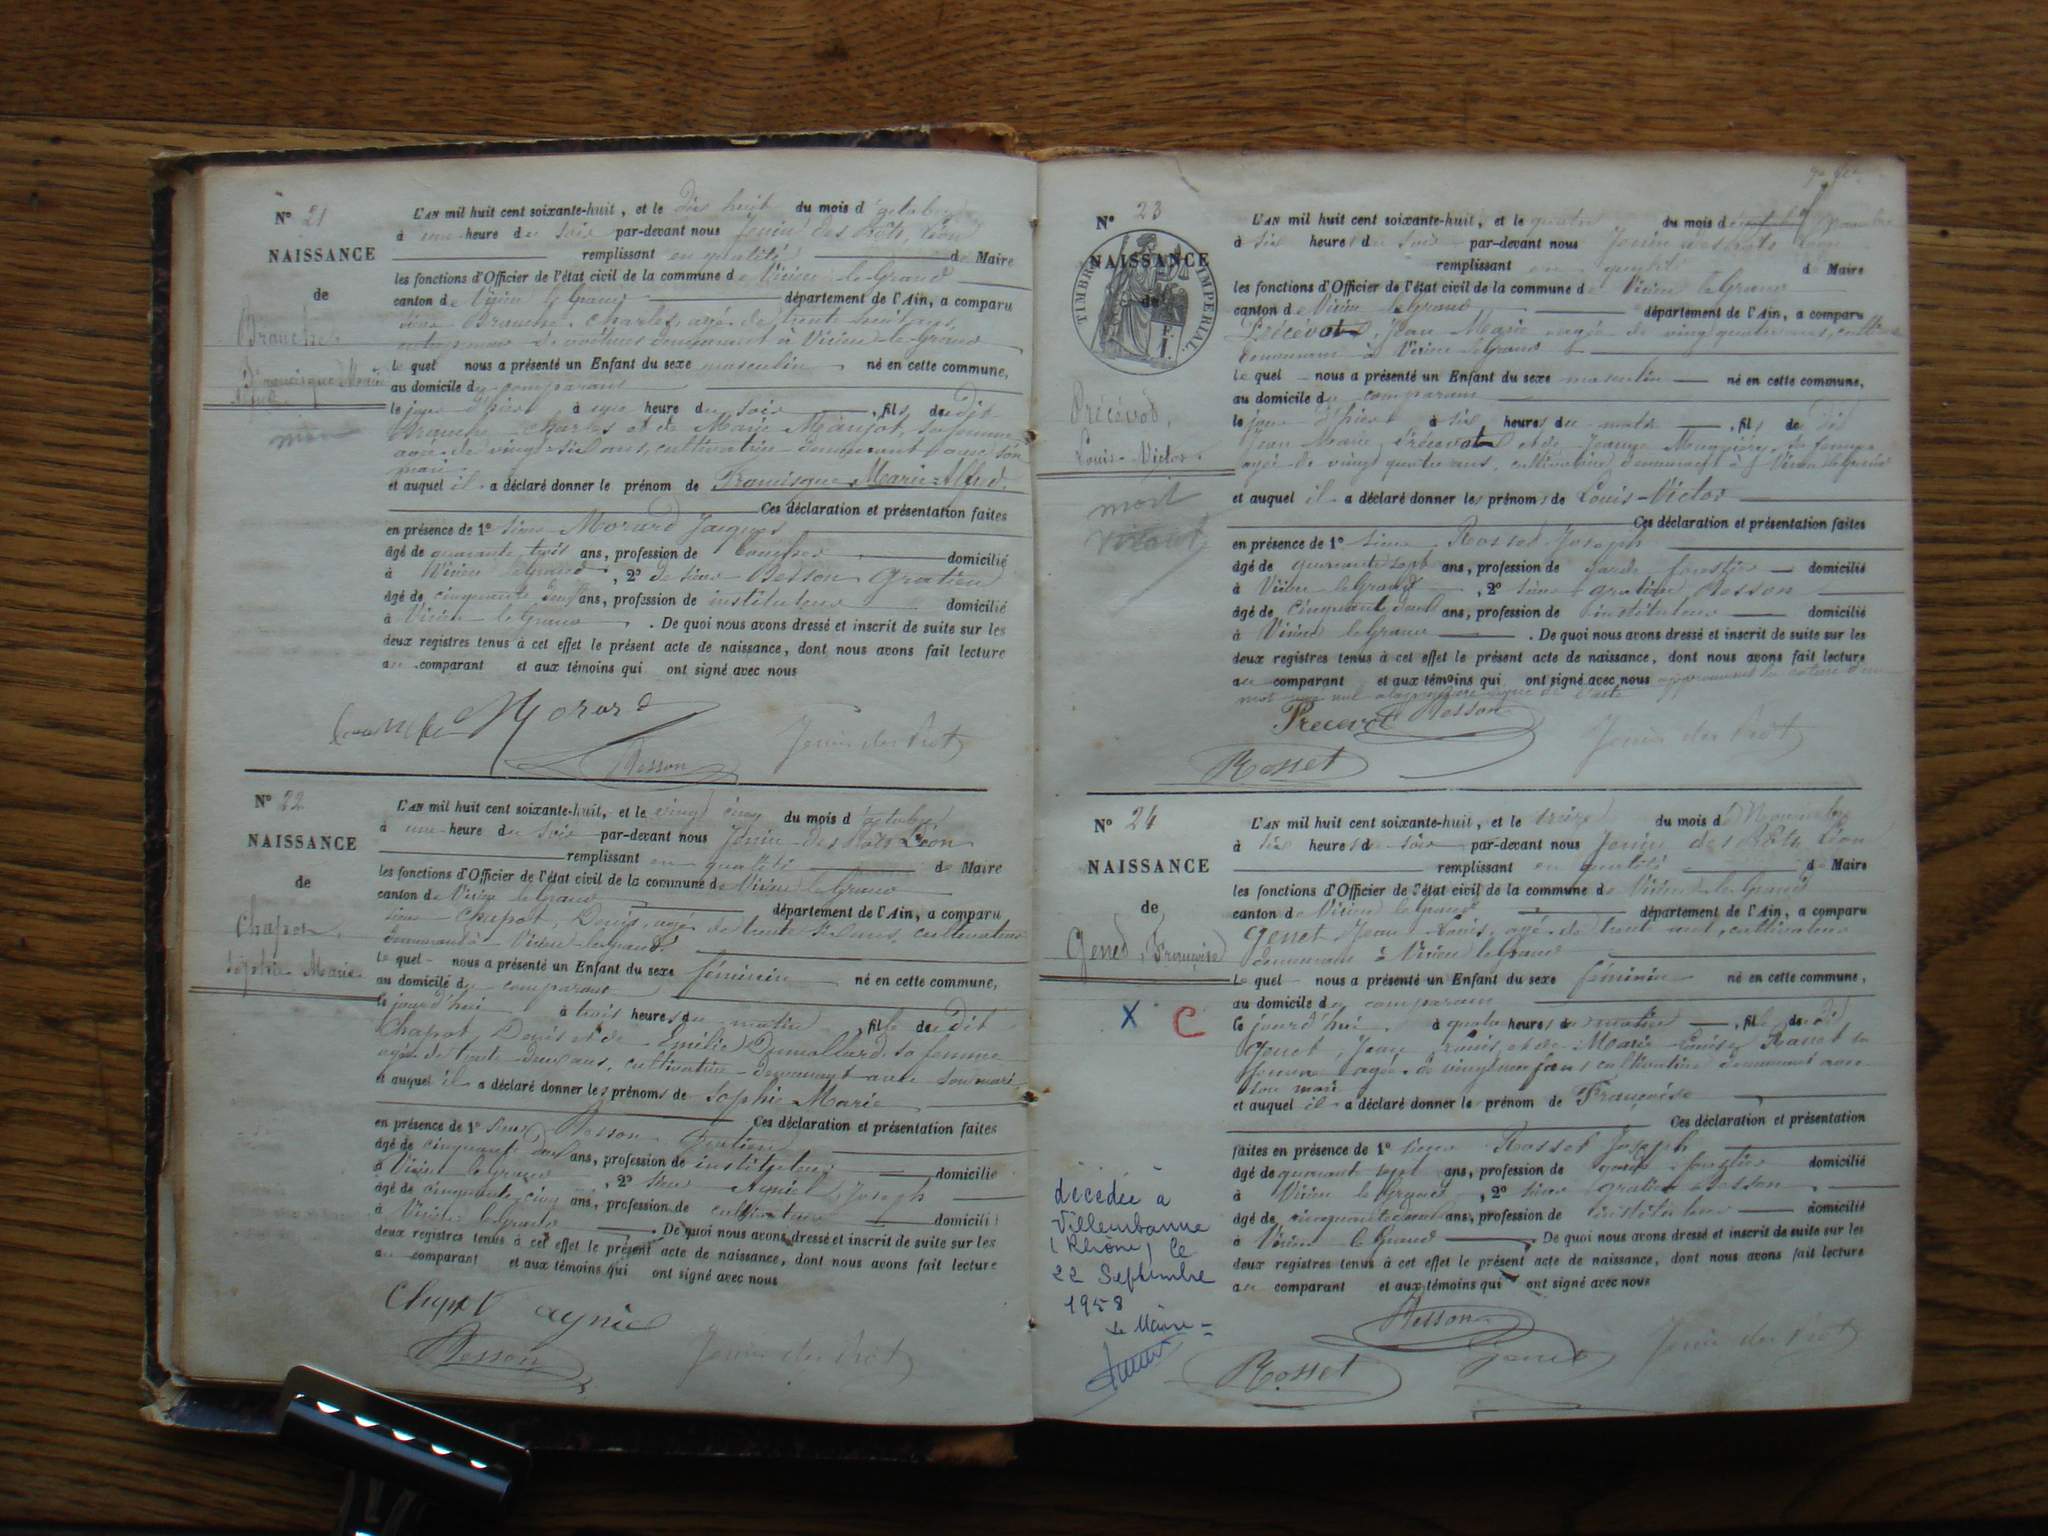 N° 21
NAISSANCE
de
Branche
Francisque Marie
Alfred
mort
L'AN mil huit cent soixante-huit, et le dix huit du mois d'octobre
à une heure du soir par-devant nous Jenin des Prôts, Léon
remplissant en qualité de Maire
les fonctions d'Officier de l'état civil de la commune de Virieu le Grand
canton de Virieu le Grand département de l'Ain, a comparu
sieur Branche, Charles, agé de trente
de voitures demeurant à Virieu-le-Grand
Le quel nous a présenté un Enfant du sexe masculin né en cette commune,
au domicile du comparant
le jour d'hier à une heure du soir, fils du dit
Branche Charles et de Marie Manjot, sa femme
agée de vingt-six ans, cultivatrice demeurant avec son
mari
et auquel il a déclaré donner le prénom de Francisque Marie-Alfred.
Ces déclaration et présentation faites
en présence de 1° sieur Morard Jacques
âgé de quarante trois ans, profession de domicilié
à Virieu le Grand, 2° de sieur Besson Gratien
âgé de cinquante deux ans, profession de instituteur domicilié
à Virieu le Grand. De quoi nous avons dressé et inscrit de suite sur les
deux registres tenus à cet effet le présent acte de naissance, dont nous avons fait lecture
au comparant et aux témoins qui ont signé avec nous
Branche Morard
Besson Jenin des Prôts
N° 22
NAISSANCE
de
Chapot,
Sophie Marie
L'AN mil huit cent soixante-huit, et le vingt cinq du mois d'octobre
à une heure du soir par-devant nous Jenin des Prôts Léon
remplissant en qualité de Maire
les fonctions d'Officier de l'état civil de la commune de Virieu le Grand
canton de Virieu le Grand département de l'Ain, a comparu
sieur Chapot, Denis, agé de trente six ans, cultivateur
demeurant à Virieu-le-Grand
Le quel nous a présenté un Enfant du sexe féminin né en cette commune,
au domicile du comparant
le jourd'hui à trois heures du matin, fille du dit
Chapot, Denis et de Emélie Dumollard, sa femme
agée de trente-deux ans, cultivatrice demeurant avec son mari
et auquel il a déclaré donner les prénoms de Sophie Marie
Ces déclaration et présentation faites
en présence de 1° sieur Besson Gratien
âgé de cinquante deux ans, profession de instituteur domicilié
à Virieu le Grand, 2° sieur Aynié, Joseph
âgé de cinquante-cinq ans, profession de cultivateur domicilié
à Virieu le Grand. De quoi nous avons dressé et inscrit de suite sur les
deux registres tenus à cet effet le présent acte de naissance, dont nous avons fait lecture
au comparant et aux témoins qui ont signé avec nous
Chapot Aynié
Besson Jenin des Prôts
N° 23
NAISSANCE
de
TIMBRE IMPERIAL
Précévot,
Louis-Victor.
mort
L'AN mil huit cent soixante-huit, et le quatre du mois de novembre
à six heures du soir par-devant nous Jenin des Prôts Léon
remplissant en qualité de Maire
les fonctions d'Officier de l'état civil de la commune de Virieu le Grand
canton de Virieu le Grand département de l'Ain, a comparu
Précévot, Jean Marie, agé de vingt quatre ans, cultivateur
demeurant à Virieu le Grand
Le quel nous a présenté un Enfant du sexe masculin né en cette commune,
au domicile du comparant
le jour d'hier à six heures du matin, fils de dit
Jean Marie Précévot et de Jeanne sa femme
agée de vingt quatre ans, cultivatrice, demeurant à Virieu le Grand
et auquel il a déclaré donner les prénoms de Louis-Victor
Ces déclaration et présentation faites
en présence de 1° sieur Rosset Joseph
âgé de quarante sept ans, profession de garde forestier domicilié
à Virieu le Grand, 2° sieur gratien Besson
âgé de cinquante deux ans, profession de instituteur domicilié
à Virieu le Grand. De quoi nous avons dressé et inscrit de suite sur les
deux registres tenus à cet effet le présent acte de naissance, dont nous avons fait lecture
au comparant et aux témoins qui ont signé avec nous approuvant la rature d'un
mot nul
Precevot Besson
Rosset Jenin des Prôts
N° 24
NAISSANCE
de
Genet, Françoise
X C
décédée à
Villeurbanne
(Rhône) le
22 Septembre
1958
Le Maire
L'AN mil huit cent soixante-huit, et le treize du mois de Novembre
à six heures du soir par-devant nous Jenin des Prôts, Léon
remplissant en qualité de Maire
les fonctions d'Officier de l'état civil de la commune de Virieu-le-Grand
canton de Virieu le Grand département de l'Ain, a comparu
Genet, Jean Louis, agé de trente ans, cultivateur
demeurant à Virieu le Grand
Le quel nous a présenté un Enfant du sexe féminin né en cette commune,
au domicile du comparant
le jourd'hui, à quatre heures du matin, fille de dit
Genet, Jean Louis, et de Marie Louise sa
femme agée de vingt neuf ans cultivatrice demeurant avec
son mari
et auquel il a déclaré donner le prénom de Françoise
Ces déclaration et présentation
faites en présence de 1° sieur Rosset Joseph
âgé de quarante sept ans, profession de garde forestier domicilié
à Virieu le Grand, 2° sieur gratien Besson
âgé de cinquante deux ans, profession de instituteur domicilié
à Virieu le Grand. De quoi nous avons dressé et inscrit de suite sur les
deux registres tenus à cet effet le présent acte de naissance, dont nous avons fait lecture
au comparant et aux témoins qui ont signé avec nous
Besson
Rosset Genet Jenin des Prôts